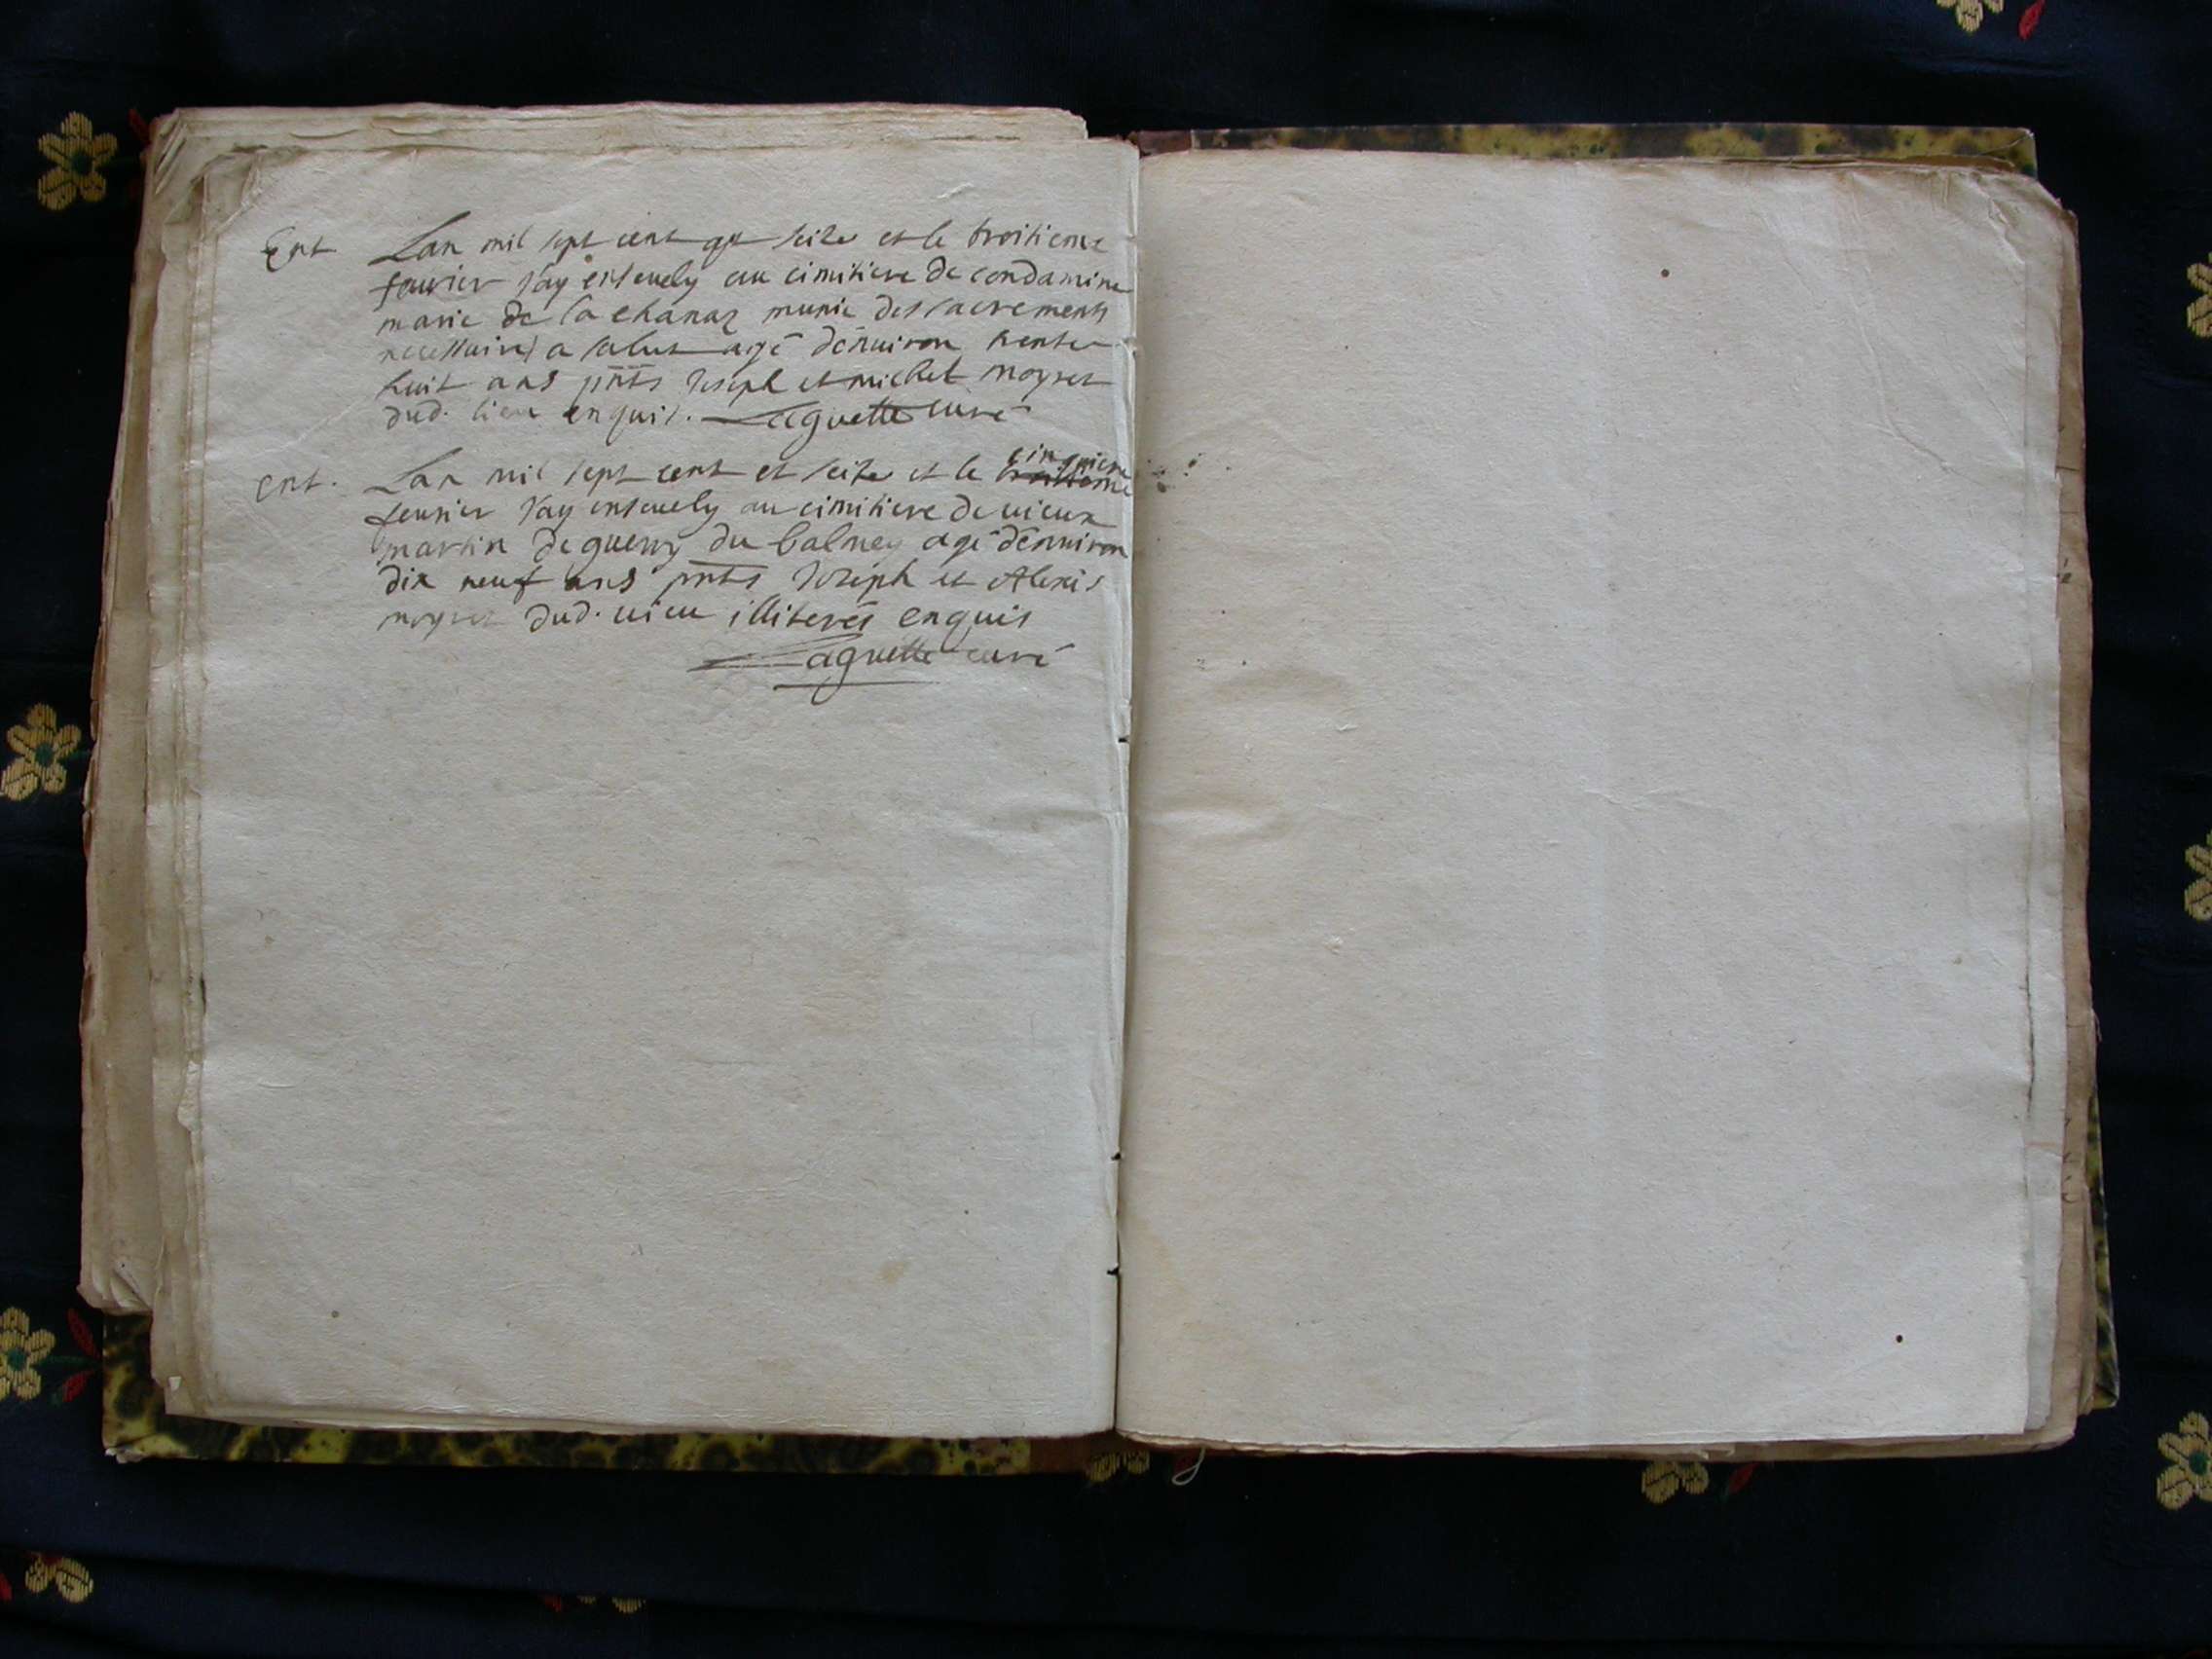 Ent Lan mil sept cent et seize et le troisieme
feuvrier Jay ensevely au cimitiere de condamine
marie de la chanaz munie des sacrements
necessaires a salut agé dénuiron trente
huit ans pnts Joseph et michel moyret
dud. lieu enquis. Laguette curé
ent. Lan mil sept cent et seize et le cinquieme
feuvrier Jay ensevely au cimitiere de vieux
martin de guerry du balmey agé dénuiron
dix neuf ans pnts Joseph et Alexis
moyret dud. vieu illiterés enquis
Laguette curé